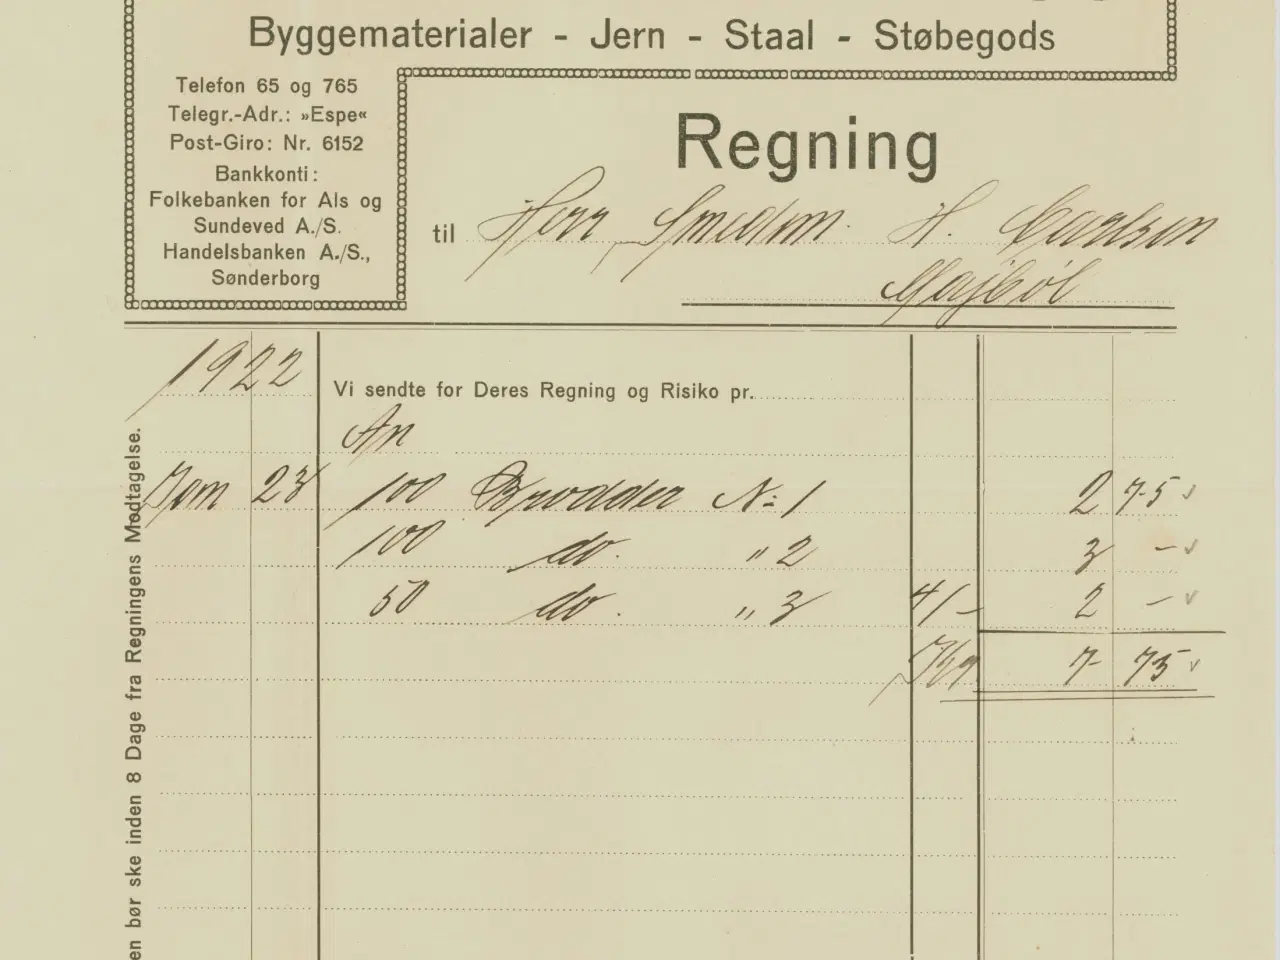 Byggematerialer - Jern - Staal - Støbegods
Telefon 65 og 765
Telegr.-Adr.: »Espe«
Post-Giro: Nr. 6152
Bankkonti:
Folkebanken for Als og
Sundeved A./S.
Handelsbanken A./S.,
Sønderborg
Regning
til Herr Smedm. H. Carlsen
Majbøl
1922
Vi sendte for Deres Regning og Risiko pr.
An
Jan 23 100 Brodder No 1 2 75
100 do. " 2 3 -
50 do. " 3 4/- 2 -
7 75
en bør ske inden 8 Dage fra Regningens Modtagelse.